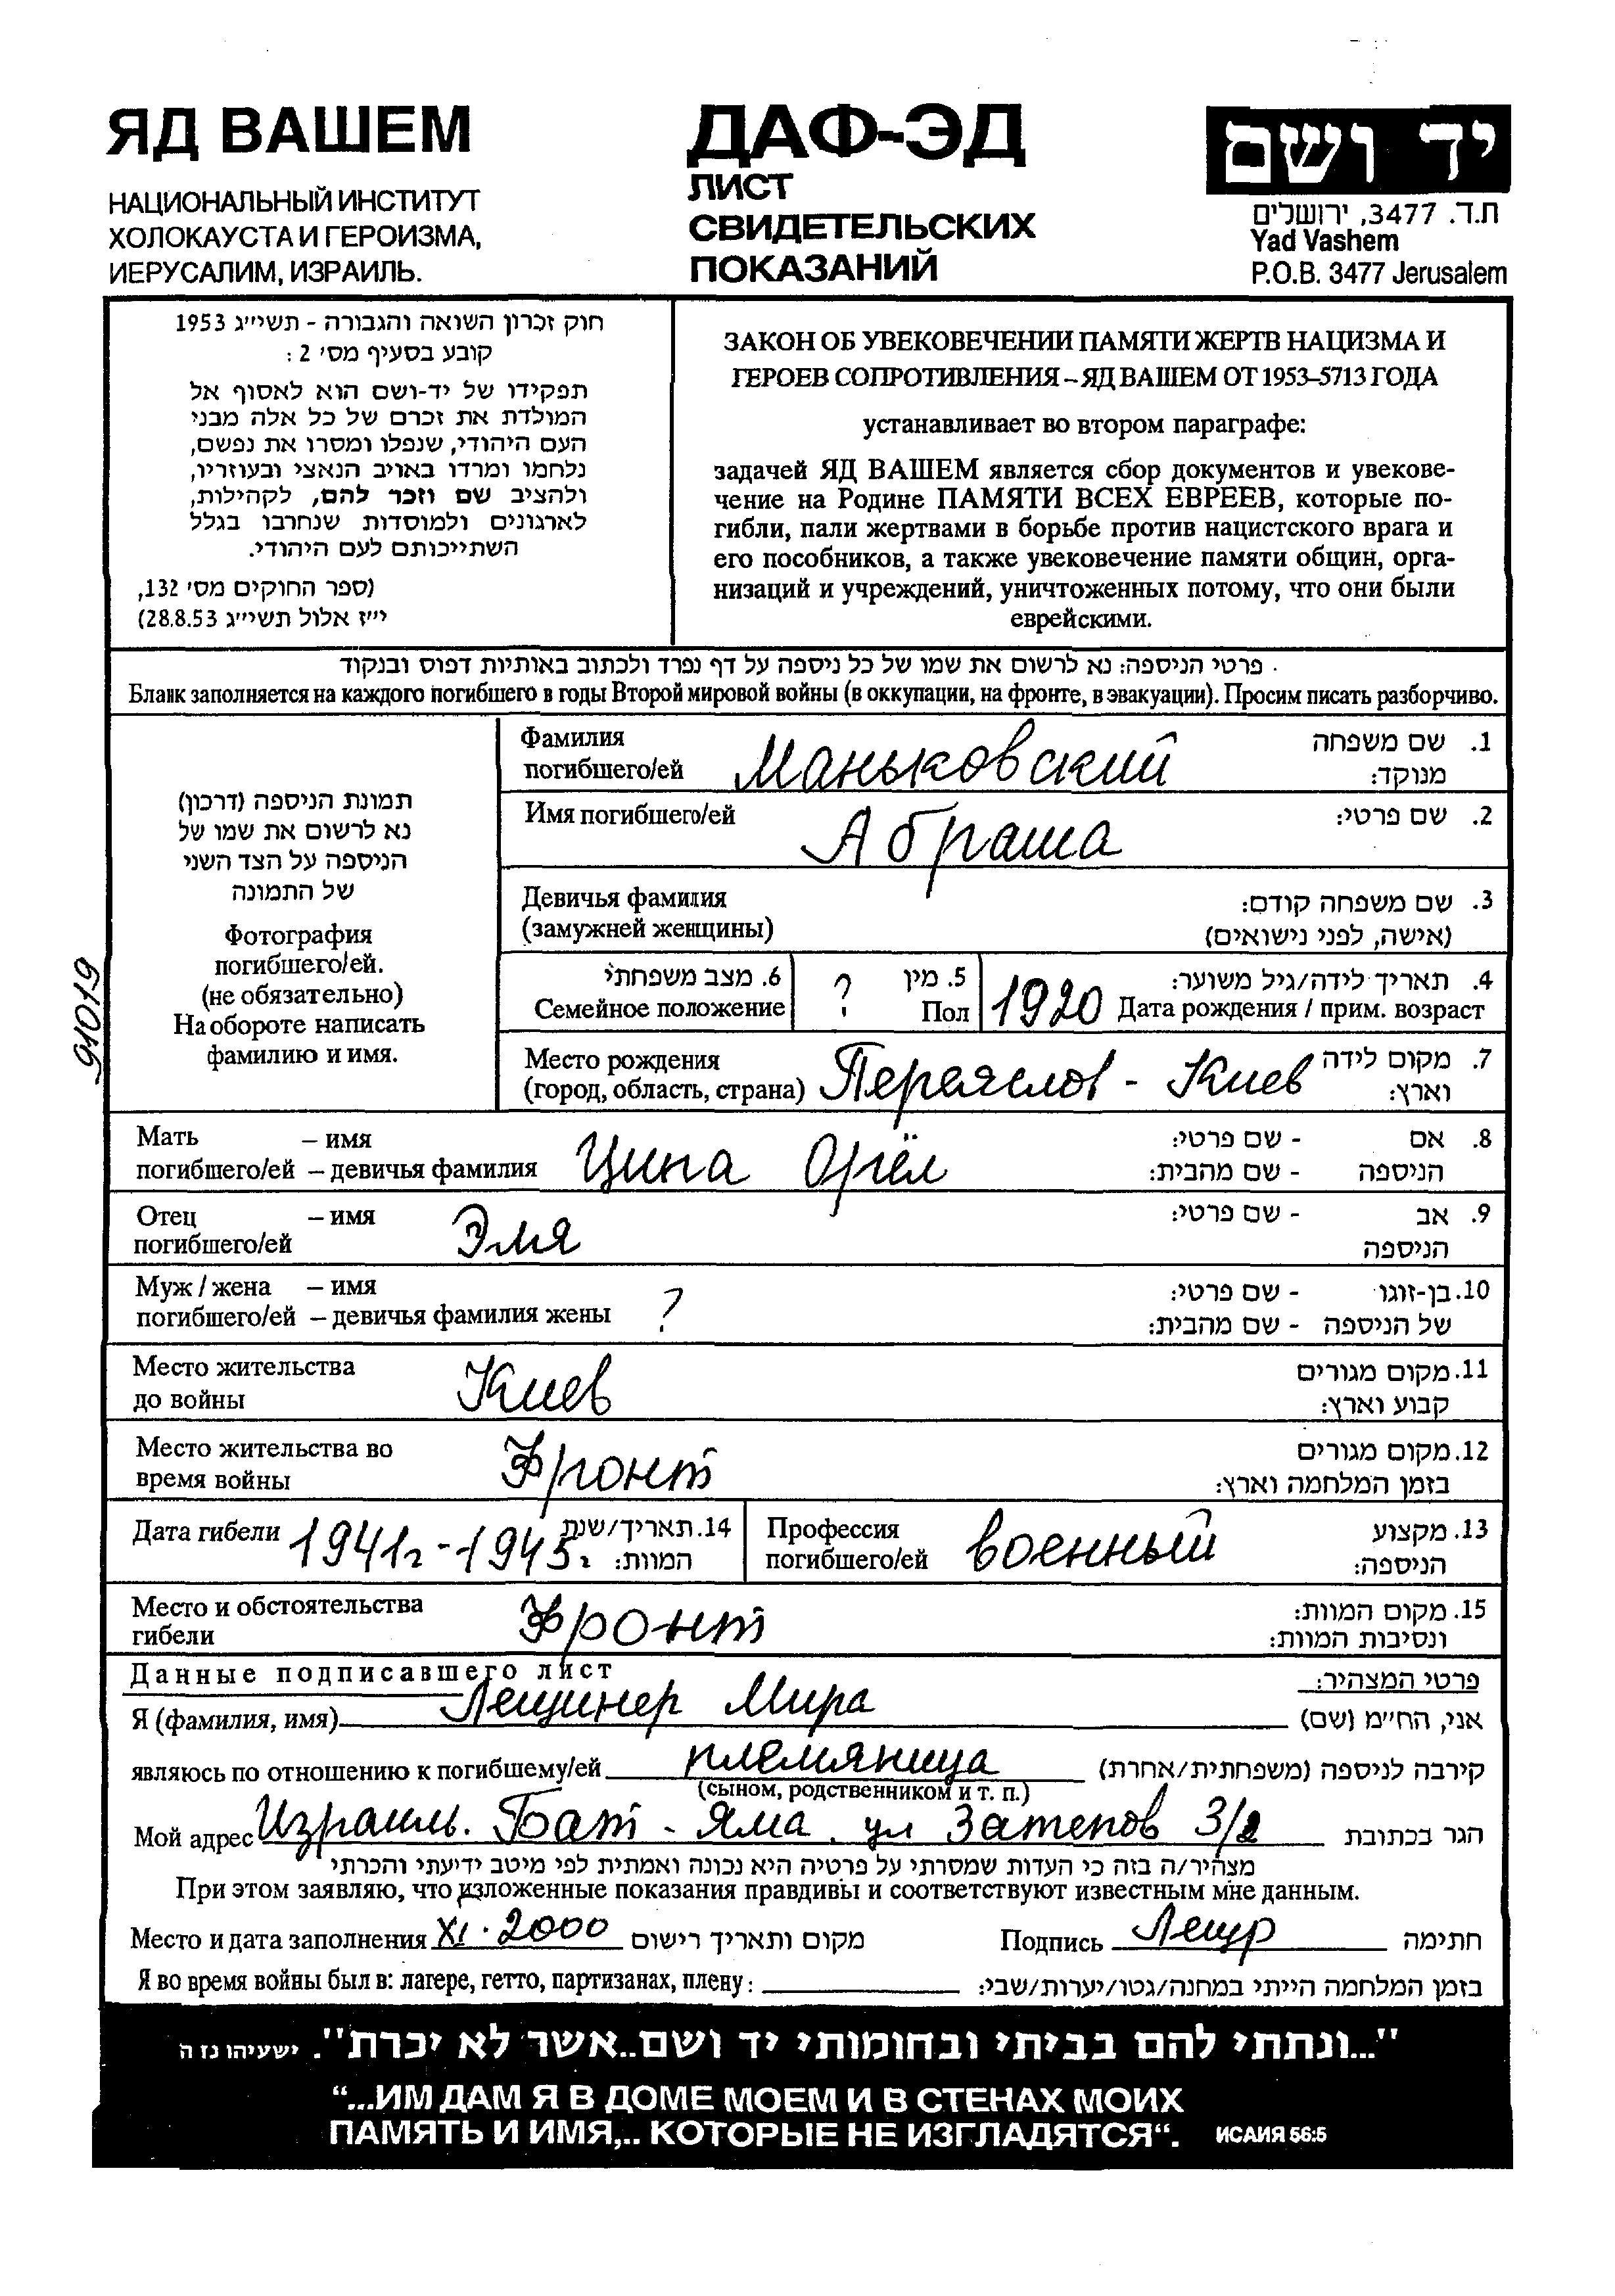 ЯД ВАШЕМ
НАЦИОНАЛЬНЫЙ ИНСТИТУТ
ХОЛОКАУСТА И ГЕРОИЗМА,
ИЕРУСАЛИМ, ИЗРАИЛЬ.
ДАФ-ЭД
ЛИСТ
СВИДЕТЕЛЬСКИХ
ПОКАЗАНИЙ
יד ושם
ת.ד. 3477, ירושלים
Yad Vashem
P.O.B. 3477 Jerusalem
חוק זכרון השואה והגבורה - תשי״ג 1953
קובע בסעיף מס׳ 2 :
תפקידו של יד-ושם הוא לאסוף אל
המולדת את זכרם של כל אלה מבני
העם היהודי, שנפלו ומסרו את נפשם,
נלחמו ומרדו באויב הנאצי ובעוזריו,
ולהציב שם וזכר להם, לקהילות,
לארגונים ולמוסדות שנחרבו בגלל
השתייכותם לעם היהודי.
(ספר החוקים מס׳ 132,
י״ז אלול תשי״ג 28.8.53)
ЗАКОН ОБ УВЕКОВЕЧЕНИИ ПАМЯТИ ЖЕРТВ НАЦИЗМА И
ГЕРОЕВ СОПРОТИВЛЕНИЯ – ЯД ВАШЕМ ОТ 1953–5713 ГОДА
устанавливает во втором параграфе:
задачей ЯД ВАШЕМ является сбор документов и увекове-
чение на Родине ПАМЯТИ ВСЕХ ЕВРЕЕВ, которые по-
гибли, пали жертвами в борьбе против нацистского врага и
его пособников, а также увековечение памяти общин, орга-
низаций и учреждений, уничтоженных потому, что они были
еврейскими.
פרטי הניספה: נא לרשום את שמו של כל ניספה על דף נפרד ולכתוב באותיות דפוס ובנקוד
Бланк заполняется на каждого погибшего в годы Второй мировой войны (в оккупации, на фронте, в эвакуации). Просим писать разборчиво.
תמונת הניספה (דרכון)
נא לרשום את שמו של
הניספה על הצד השני
של התמונה
Фотография
погибшего/ей.
(не обязательно)
На обороте написать
фамилию и имя.
91019
Фамилия שם משפחה .1
погибшего/ей Маньковский מנוקד:
Имя погибшего/ей Абраша שם פרטי: .2
Девичья фамилия שם משפחה קודם: .3
(замужней женщины) (אישה, לפני נישואים)
6. מצב משפחתי ? 5. מין 1920 תאריך לידה/גיל משוער: .4
Семейное положение Пол Дата рождения / прим. возраст
Место рождения מקום לידה .7
(город, область, страна) Переяслов - Киев וארץ:
Мать – имя אם - שם פרטי: .8
погибшего/ей – девичья фамилия Ципа Орёл הניספה - שם מהבית:
Отец – имя אב - שם פרטי: .9
погибшего/ей Эля הניספה
Муж / жена – имя 10. בן-זוגו - שם פרטי:
погибшего/ей – девичья фамилия жены ? של הניספה - שם מהבית:
Место жительства 11. מקום מגורים
до войны Киев קבוע וארץ:
Место жительства во 12. מקום מגורים
время войны Фронт בזמן המלחמה וארץ:
Дата гибели 1941г.-1945г. 14. תאריך/שנת המוות:
Профессия 13. מקצוע
погибшего/ей военный הניספה:
Место и обстоятельства 15. מקום המוות:
гибели Фронт ונסיבות המוות:
Данные подписавшего лист פרטי המצהיר:
Я (фамилия, имя) Лещинер Мира אני, הח״מ (שם)
являюсь по отношению к погибшему/ей племяница קירבה לניספה (משפחתית/אחרת)
(сыном, родственником и т. п.)
Мой адрес Израиль. Бат - Яма, ул Затепов 3/2 הגר בכתובת
מצהיר/ה בזה כי העדות שמסרתי על פרטיה היא נכונה ואמתית לפי מיטב ידיעתי והכרתי
При этом заявляю, что изложенные показания правдивы и соответствуют известным мне данным.
Место и дата заполнения XI. 2000 מקום ותאריך רישום Подпись Лещр חתימה
Я во время войны был в: лагере, гетто, партизанах, плену: בזמן המלחמה הייתי במחנה/גטו/יערות/שבי:
"...ונתתי להם בביתי ובחומותי יד ושם..אשר לא יכרת". ישעיהו נז ה
“...ИМ ДАМ Я В ДОМЕ МОЕМ И В СТЕНАХ МОИХ
ПАМЯТЬ И ИМЯ,.. КОТОРЫЕ НЕ ИЗГЛАДЯТСЯ“. ИСАИЯ 56:5